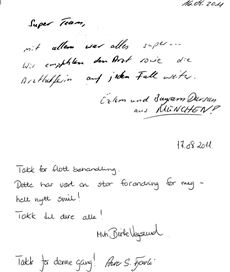 16.09.2011
Super Team,
mit allem war alles super...
Wir empfehlen den Arzt sowie die
Arzthelferin auf jeden Fall weiter.
Özlem und Bayram Dursun
aus MÜNCHEN!
17.08.2011
Takk for flott behandling.
Dette har vært en stor forandring for meg -
helt nytt smil!
Takk til dere alle!
Mvh. Berte
Takk for denne gang! S.